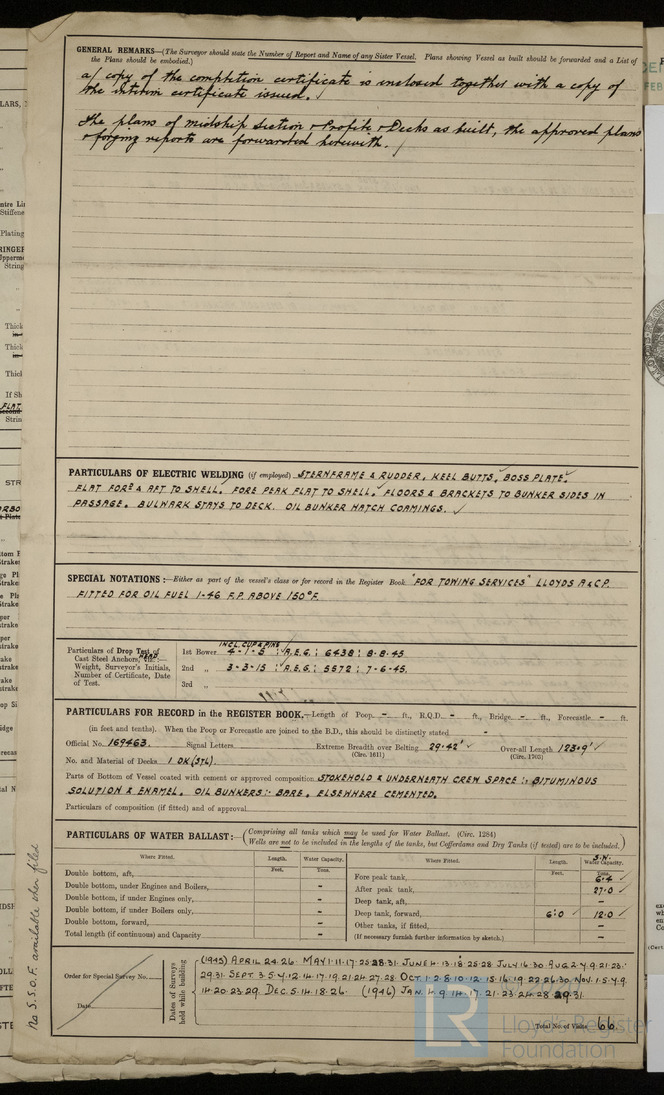 GENERAL REMARKS—(The Surveyor should state the Number of Report and Name of any Sister Vessel. Plans showing Vessel as built should be forwarded and a List of
the Plans should be embodied.)
a/ copy of the completion certificate is inclosed together with a copy of
the interim certificate issued.
The plans of midship section & Profile & Decks as built, the approved plans
& forging reports are forwarded herewith.
PARTICULARS OF ELECTRIC WELDING (if employed) STERNFRAME & RUDDER, KEEL BUTTS, BOSS PLATE.
FLAT FORD & AFT TO SHELL. FORE PEAK FLAT TO SHELL. FLOORS & BRACKETS TO BUNKER SIDES IN
PASSAGE. BULWARK STAYS TO DECK. OIL BUNKER HATCH COAMINGS. ✓
SPECIAL NOTATIONS:—Either as part of the vessel's class or for record in the Register Book "FOR TOWING SERVICES" LLOYDS A & CP.
FITTED FOR OIL FUEL 1-46 F.P. ABOVE 150°F.
Particulars of Drop Test of
Cast Steel Anchors,
Weight, Surveyor's Initials,
Number of Certificate, Date
of Test.
INCL. CUP & PINS
1st Bower 4-1-5 : A.E.G. : 6438 : 8-8-45.
2nd „ 3-3-15 : A.E.G. : 5572 : 7-6-45.
3rd „
PARTICULARS FOR RECORD in the REGISTER BOOK.—Length of Poop - ft., R.Q.D. - ft., Bridge - ft., Forecastle - ft.
(in feet and tenths). When the Poop or Forecastle are joined to the B.D., this should be distinctly stated -
Official No. 169463. Signal Letters Extreme Breadth over Belting 29.42' ✓ Over-all Length 123.9' ✓
(Circ. 1611) (Circ. 1703)
No. and Material of Decks 1 DK (STL).
Parts of Bottom of Vessel coated with cement or approved composition STOKEHOLD & UNDERNEATH CREW SPACE :- BITUMINOUS
SOLUTION & ENAMEL. OIL BUNKERS:- BARE. ELSEWHERE CEMENTED.
Particulars of composition (if fitted) and of approval
PARTICULARS OF WATER BALLAST:— (Comprising all tanks which may be used for Water Ballast. (Circ. 1284)
Wells are not to be included in the lengths of the tanks, but Cofferdams and Dry Tanks (if tested) are to be included.)
Where Fitted. Length. Water Capacity.
Feet. Tons.
Double bottom, aft, -
Double bottom, under Engines and Boilers, -
Double bottom, if under Engines only, -
Double bottom, if under Boilers only, -
Double bottom, forward, -
Total length (continuous) and Capacity -
Where Fitted. Length. Water Capacity.
Feet. Tons.
Fore peak tank, 6.4 ✓
After peak tank, 27.0 ✓
Deep tank, aft, -
Deep tank, forward, 6.0 ✓ 12.0 ✓
Other tanks, if fitted, -
(If necessary furnish further information by sketch.)
Order for Special Survey No.
Date
Dates of Surveys
held while building
(1945) APRIL 24.26. MAY 1.11.17.25.28.31. JUNE 4.13.18.25.28 JULY 16.30 AUG 2.7.9.21.23.
29.31. SEPT 3.5.7.12.14.17.19.21.24.27.28 OCT. 1.2.8.10.12.15.16.19.22.26.30 NOV. 1.5.7.9.
14.20.23.29. DEC 5.14.18.26. (1946) JAN. 4.9.14.17.21.23.24.28 29.31.
Total No. of Visits 66
No S.S.O.F. available when filed
LR
Lloyd's Register
Foundation